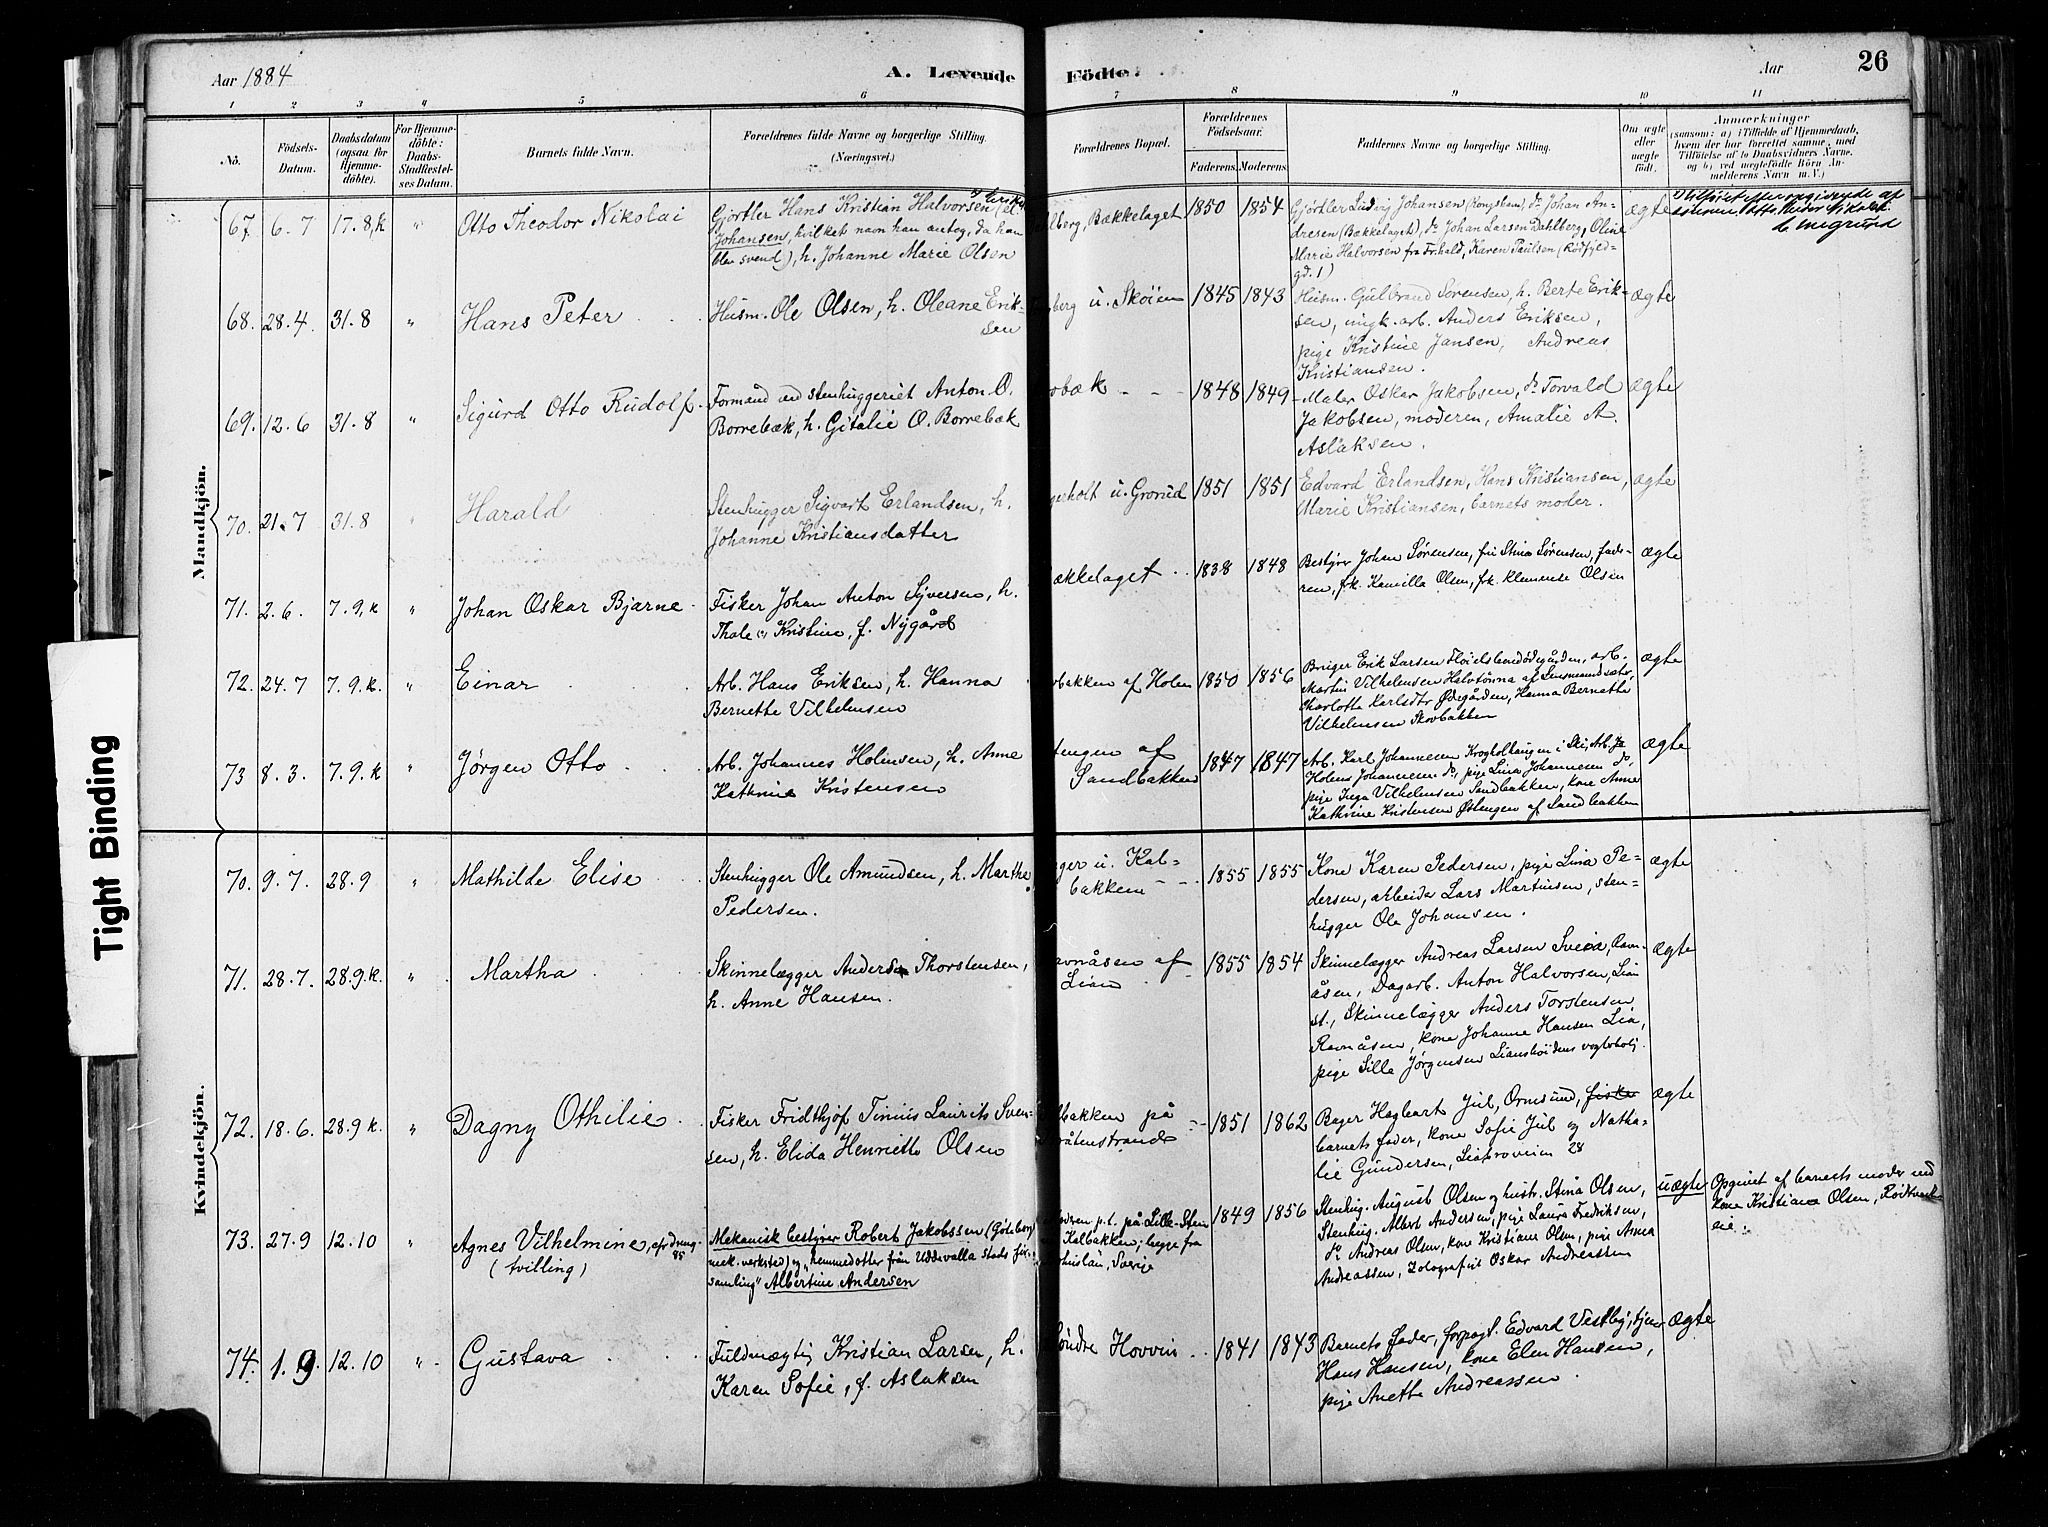 Aar 1884
A. Levende Födte.
Aar
26
1 2 3 4 5 6 7 8 9 10 11
No.
Födsels-Datum.
Daabsdatum (ogsaa for Hjemme-döbte).
For Hjemme-döbte: Daabs-Stadfæstel-ses Datum.
Barnets fulde Navn.
Forældrenes fulde Navne og borgerlige Stilling. (Næringsvei.)
Forældrenes Bopæl.
Forældrenes Födselsaar.
Faderens. Moderens.
Faddernes Navne og borgerlige Stilling.
Om ægte eller uægte födt.
Anmærkninger
(saasom: a) i Tilfælde af Hjemmedaab,
hvem der har forrettet samme, med
Tilföielse af to Daabsvidners Navne,
og b) ved uægtefödte Börn An-
melderens Navn m. V.)
Mandkjön.
67. 6.7 17.8,k " Otto Theodor Nikolai
Gjörtler Hans Kristian Halvorsen
Johansen, hvilket navn han antog, da han
blev svend), h. Johanne Marie Olsen
lberg, Bækkelaget 1850 1854
Gjörtler Ludvig Johansen (Kongshavn), do Johan An-
dresen (Bækkelaget), do Johan Larsen Dahlberg, Oline
Marie Halvorsen fra Fr.hald, Karen Paulsen (Rödfjeld-
gd. 1)
ægte
68. 28.4. 31.8 " Hans Peter
Husm. Ole Olsen, h. Oleane Erik-
sen
berg u. Skøien 1845 1843
Husm. Gulbrand Sørensen, h. Berte Erik-
sen, ungk. arb. Anders Eriksen,
pige Kristine Jansen, Andreas
Kristiansen.
ægte
69. 12.6 31.8 " Sigurd Otto Rudolf.
Formand ved stenhuggeriet Anton O.
Borrebæk, h. Gitalie O. Borrebæk
obæk - - 1848 1849
Maler Oskar Jakobsen, do Torvald
Jakobsen, moderen, Amalie A.
Aslaksen.
ægte
70. 21.7 31.8 " Harald
Stenhugger Sigvart Erlandsen, h.
Johanne Kristiansdatter
holt u. Grorud 1851 1851
Edvard Erlandsen, Hans Kristiansen,
Marie Kristiansen, barnets moder.
ægte
71. 2.6. 7.9,k " Johan Oskar Bjarne
Fisker Johan Anton Syversen, h.
Thale Kristine, f. Nygård
ækkelaget 1838 1848
Bestyrer Johan Sørensen, fru Stina Sørensen, fade-
ren, frk. Kamilla Olsen, frk. Klemense Olsen
ægte
72. 24.7 7.9.k. " Einar
Arb. Hans Eriksen, h. Hanna
Bernette Vilhelmsen
bakken af Holm 1850 1856
Bruger Erik Larsen
Martin Vilhelmsen
Charlotte Karlsdtr Ødegården, Hanna Bernette
Vilhelmsen Skovbakken
ægte
73 8.3. 7.9.k " Jørgen Otto
Arb. Johannes Holmsen, h. Anne
Kathrine Kristensen
tengen af
Sandbakken 1847 1847
Arb. Karl Johannesen Krogholhaugen i Ski, Arb.
Johannesen do, pige Lina Johannesen do,
pige Inga Vilhelmsen Sandbakken, kone Anne
Kathrine Kristensen Østengen af Sandbakken
ægte
Kvindekjön.
70. 9.7. 28.9 " Mathilde Elise
Stenhugger Ole Amundsen, h. Marthe
Pedersen.
ger u. Kal-
bakken 1855 1855
Kone Karen Pedersen, pige Lina Pe-
dersen, arbeider Lars Martinsen, sten-
hugger Ole Johansen.
ægte
71. 28.7. 28.9.k. " Martha
Skinnelægger Anders Thorstensen,
h. Anne Hansen.
avnåsen af
Lian 1855 1854
Skinnelægger Andreas Larsen Svea, Ravn-
åsen, Dagarb. Anton Halvorsen, Lian
st., Skinnelægger Anders Torstensen
Ravnåsen, kone Johanne Hansen Lia,
pige Lille Jørgensen
ægte
72. 18.6. 28.9 k. " Dagny Othilie
Fisker Fridthjof Tinius Laurits Sven-
sen, h. Elida Henriette Olsen
bakken på
råtenstrand 1851 1862
Bager Hagbart Jul, Ormsund, fisker
barnets fader, kone Sofie Jul og Natha-
lie Gundersen, Liabroveien 28
ægte
73. 27.9 12.10 " Agnes Vilhelmine,
(tvilling)
Mekanisk bestyrer Robert Jakobssen (Göteborg
mek. verksted) og "hemmedotter från Uddevalla stads för-
samling" Albertine Andersen
p.t. på Lille-Sten
Kalbakken; begge fra
huslän, Sverige 1849 1856
Stenhug. August Olsen og hustr. Stina Olsen,
Stenhug. Albert Andersen, pige Laura Fredriksen,
do Andreas Olsen, kone Kristiane Olsen, pige Anna
Andreassen, Oskar Andreassen
uægte
Opgivet af barnets moder ved
kone Kristiane Olsen,
74. 1.9 12.10 " Gustava
Fuldmægtig Kristian Larsen, h.
Karen Sofie, f. Aslaksen
Søndre Hovvin 1841 1843
Barnets fader, forpagt. Edvard Vestby, tjener
Hans Hansen, kone Elen Hansen,
pige Anette Andreassen.
ægte
Tight Binding